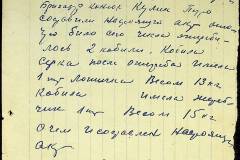 Бригадир конюх Кулик Пётр
составили настоящий акт о том
что было сего числа ожереби
лось 2 кобыли. Кобила
Серка после ожереба имела
1 шт лошичка весом 13 кг
Кобила имела жереб
чик 1 шт весом 15 кг
О чем и составлен настоящ
акт